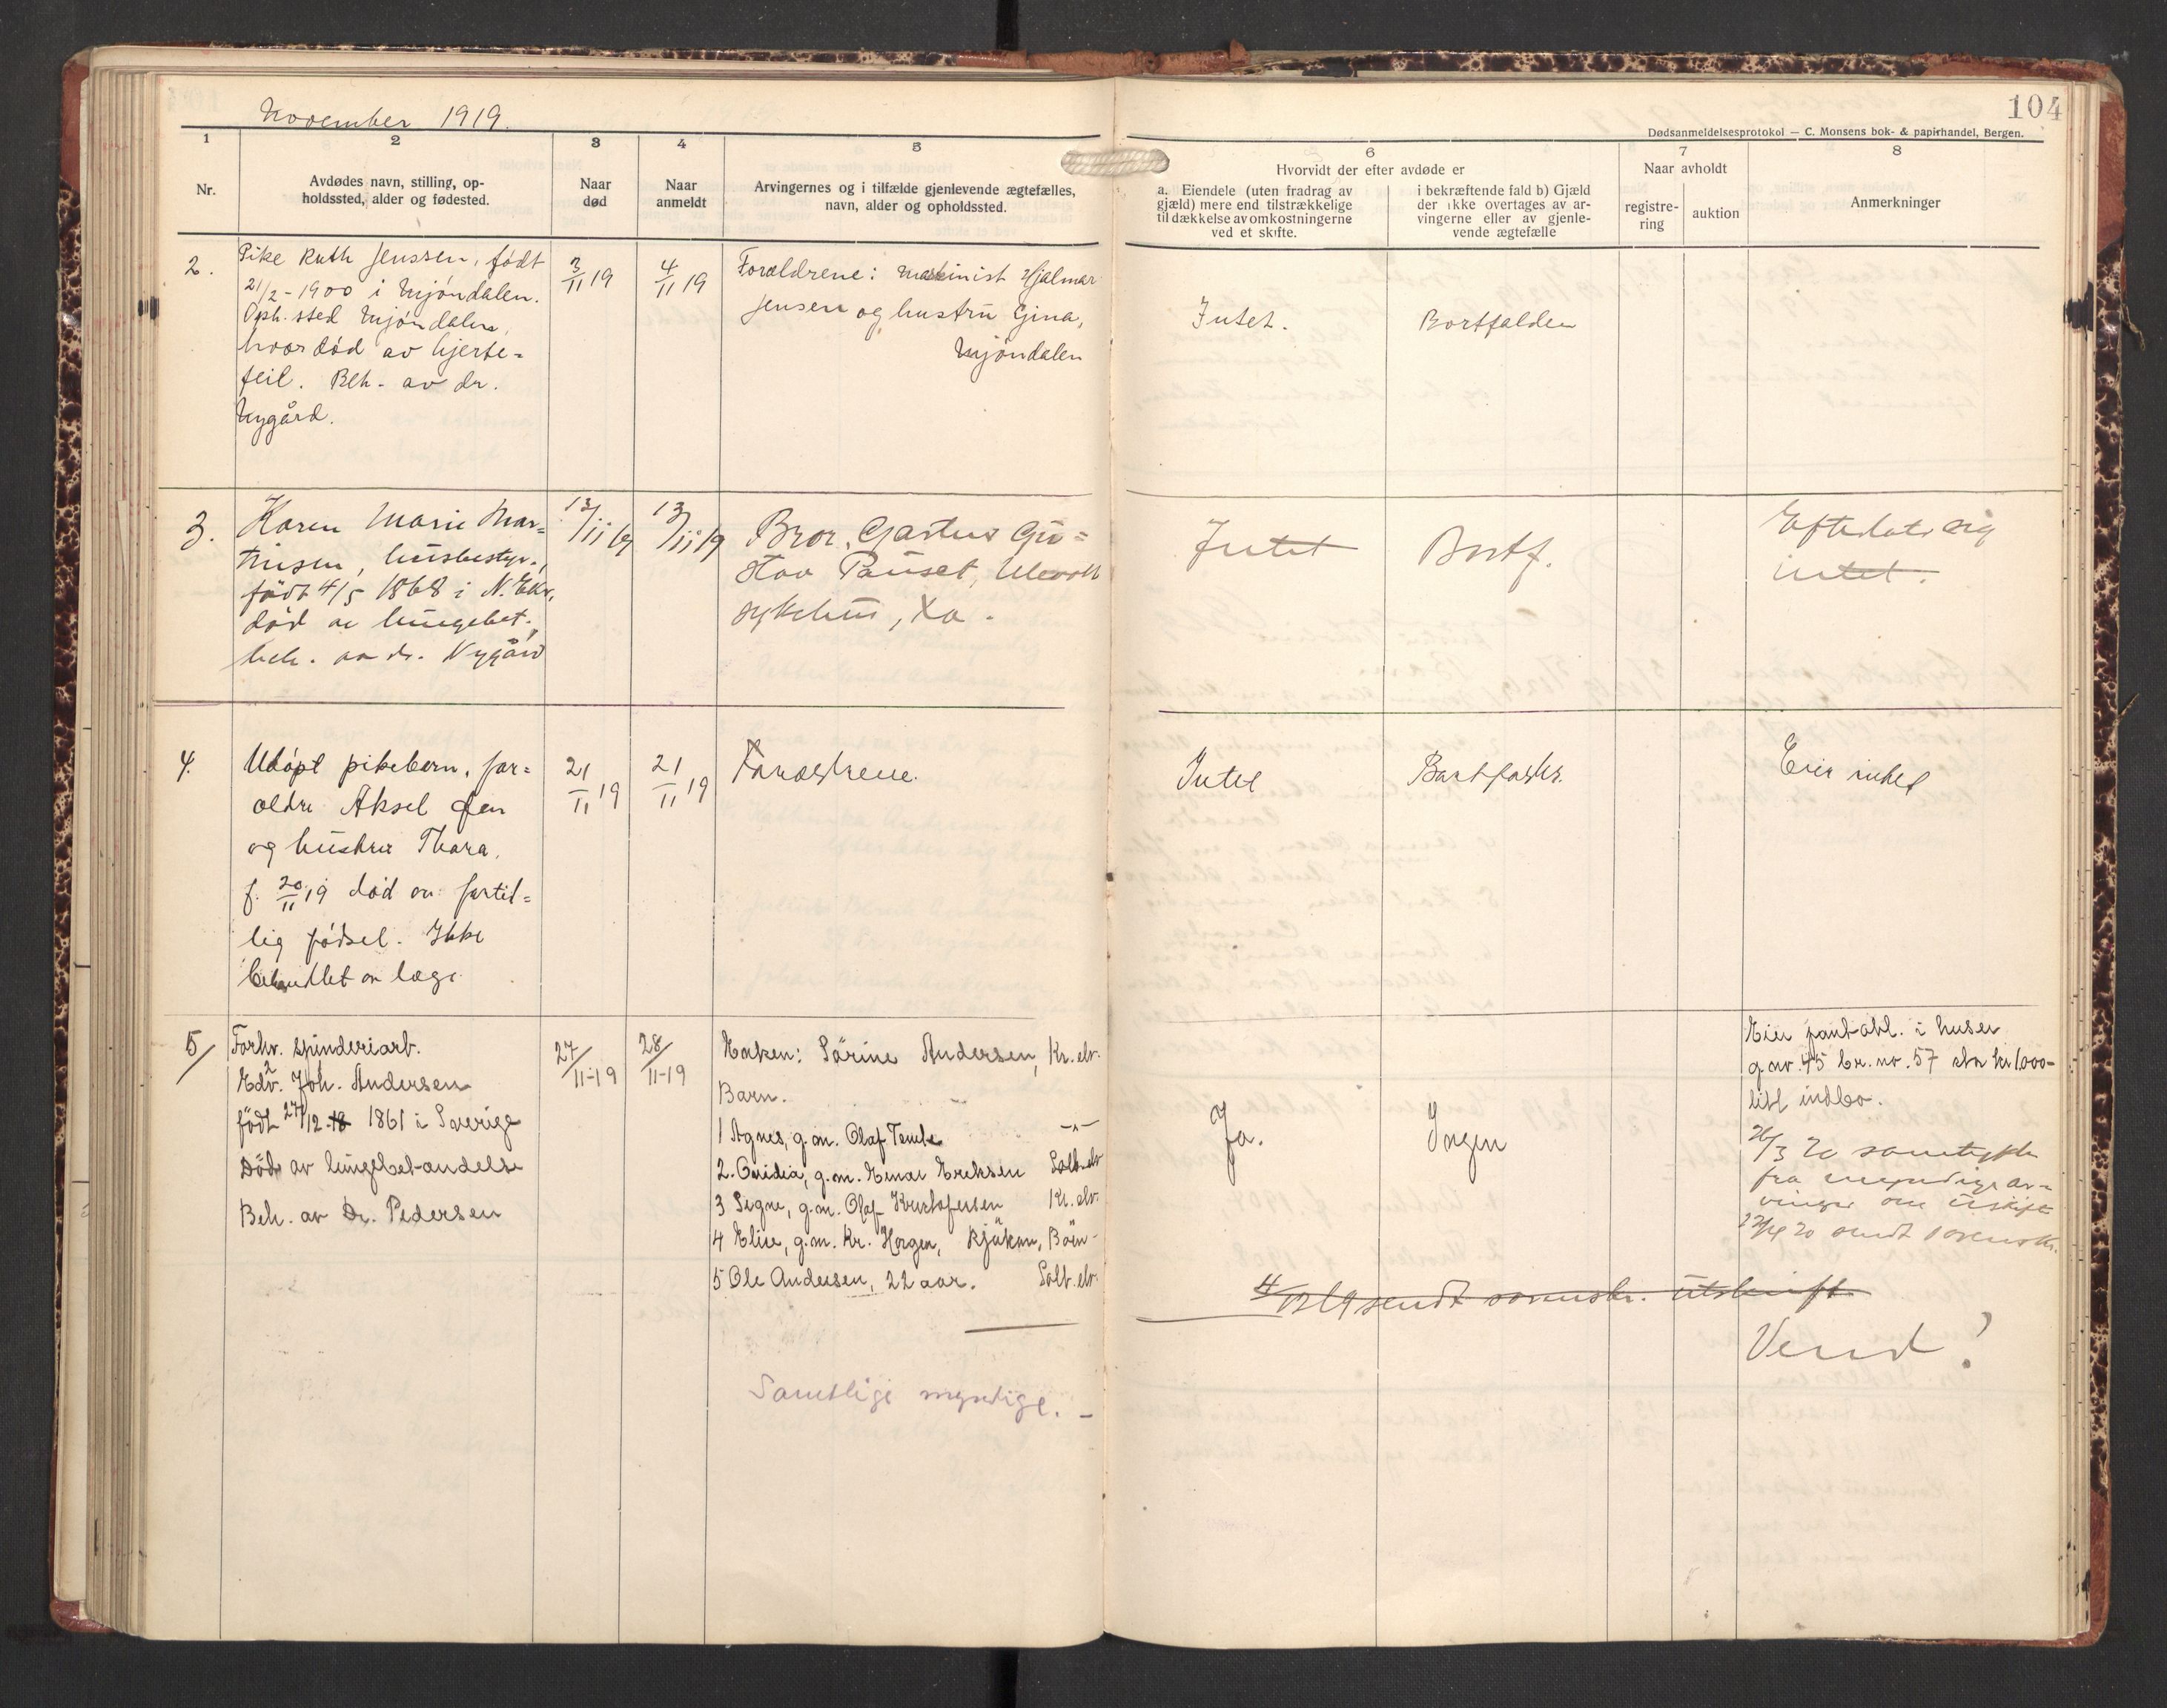 November 1919.
104
Dødsanmeldelsesprotokol — C. Monsens bok- & papirhandel, Bergen.
1
2
3
4
5
6
7
8
Nr.
Avdødes navn, stilling, op-
holdssted, alder og fødested.
Naar
død
Naar
anmeldt
Arvingernes og i tilfælde gjenlevende ægtefælles,
navn, alder og opholdssted.
Hvorvidt der efter avdøde er
a. Eiendele (uten fradrag av
gjæld) mere end tilstrækkelige
til dækkelse av omkostningerne
ved et skifte.
i bekræftende fald b) Gjæld
der ikke overtages av ar-
vingerne eller av gjenle-
vende ægtefælle
Naar avholdt
registre-
ring
auktion
Anmerkninger
2.
Pike Ruth Jenssen, født
21/2 - 1900 i Mjöndalen.
Oph. sted Mjöndalen,
hvor död av hjerte-
feil. Beh. av dr.
Nygård.
3/11 19
4/11 19
Forældrene: maskinist Hjalmar
Jensen og hustru Gina,
Mjöndalen
Intet.
Bortfalden
3.
Karen Marie Mar-
tinsen, husbestyr.,
född 4/5 1868 i N. Eker,
död av lungebet.,
beh. av dr. Nygård
13/11 19
13/11 19
Bror, Gu=
stav Pauset, Ullevold
sykehus, Xa.
Intet
Bortf.
Efterlot sig
intet.
4.
Udöpt pikebarn, for=
ældre Aksel
og hustru Thora,
f. 20/11 19 död av fortid=
lig fødsel. Ikke
behandlet av læge
21/11 19
21/11 19
Forældrene.
Intet
Bortfalder.
Eier intet
5/
Forhv. spinderiarb.
Edv. Joh. Andersen
født 27/12 - 18 1861 i Sverige
Död av lungebetændelse
Beh. av Dr. Pedersen
27/11-19
28/11-19
Enken: Sörine Andersen, Kr. elv.
Barn.
1 Agnes, g.m. Olaf — " —
2. Ovidia, g.m. Einar Eriksen Solb. elv
3 Signe, g.m. Olaf Kristofersen Kr. elv.
4 Elise, g.m. Kr. Horgen, Rjukan,
5 Ole Andersen, 22 aar. Solb. elv.
Samtlige myndige. -
Ja.
Ingen
Eier pant-obl. i huset
g.nr. 45 br.nr. 57 stor kr 1000-
litt indbo.
26/3 20 samtykke
fra myndige ar-
vinger om uskifte
20 sendt svensk.
4/12 19 sendt svensk. utskrift.
Vend!